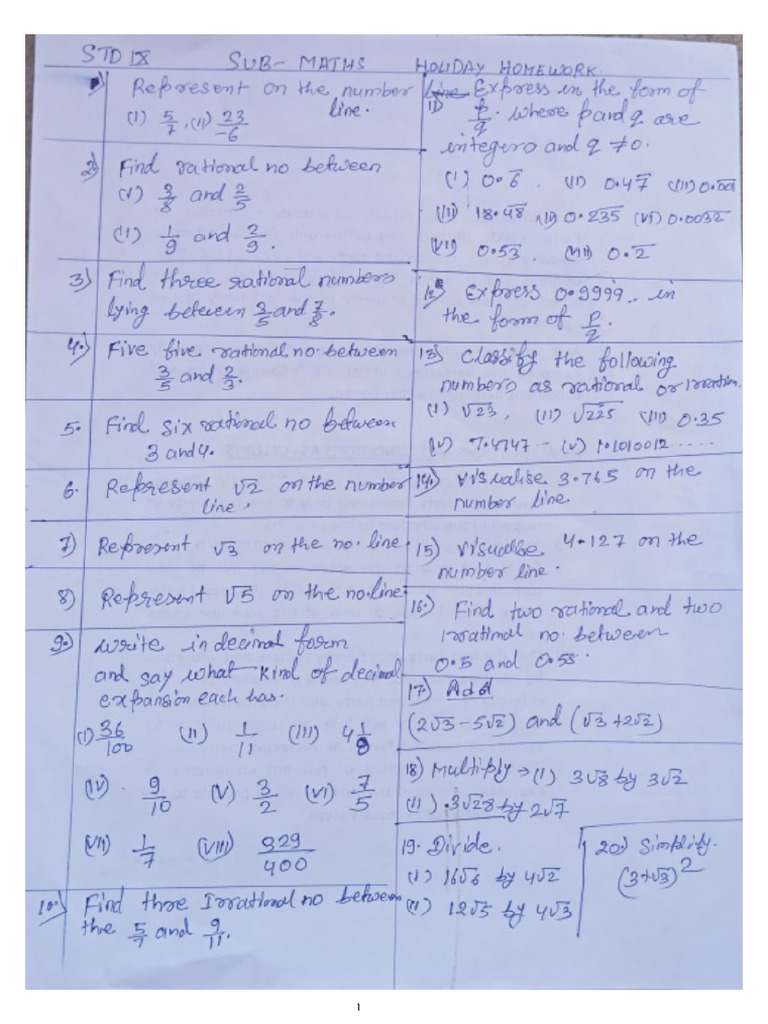 STD IX SUB- MATHS HOLIDAY HOMEWORK
1) Represent on the number line.
(i) 5/7, (ii) 23/-6
2) Find rational no between
(i) 3/8 and 2/5
(ii) 1/9 and 2/9.
3) Find three rational numbers
lying between 3/5 and 7/8.
4.) Five five rational no. between
3/5 and 2/3.
5. Find six rational no between
3 and 4.
6. Represent √2 on the number
line.
7) Represent √3 on the no. line
8) Represent √5 on the no. line
9.) Write in decimal form
and say what kind of decimal
expansion each has.
(i) 36/100 (ii) 1/11 (iii) 4 1/8
(iv) 9/10 (v) 3/2 (vi) 7/5
(vii) 1/7 (viii) 329/400
10.) Find three Irrational no between
the 5/7 and 9/11.
11) Express in the form of
p/q. where p and q are
integers and q ≠ 0.
(i) 0.6̅, (ii) 0.47̅ (iii)
(iii) 18.4̅8̅ 0.2̅3̅5̅ (vi) 0.003̅2̅
(vii) 0.53̅, 0.2̅
12) Express 0.9999.. in
the form of p/q.
13) Classify the following
numbers as rational or
(i) √23, (ii) √225 (iii) 0.35
(iv) 7.4747-- (v) 1.1010012.....
14) Visualise 3.765 on the
number line.
15) Visualise 4.127 on the
number line.
16.) Find two rational and two
irrational no. between
0.5 and 0.55.
17) Add
(2√3-5√2) and (√3+2√2)
18) Multiply → (i) 3√8 by 3√2
(ii) 3√28 by 2√7
19. Divide.
(i) 16√6 by 4√2
(ii) 12√5 by 4√3
20) Simplify.
(3+√3)²
1